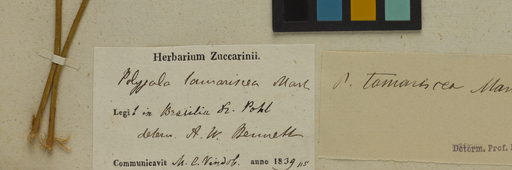 Herbarium Zuccarinii.
Polygala tamariscea Mart
Legit in Brasilia Dr. Pohl
determ. A. W. Bennett
Communicavit M. C. Vindob. anno 1839
P. tamariscea Mar
Determ. Prof.